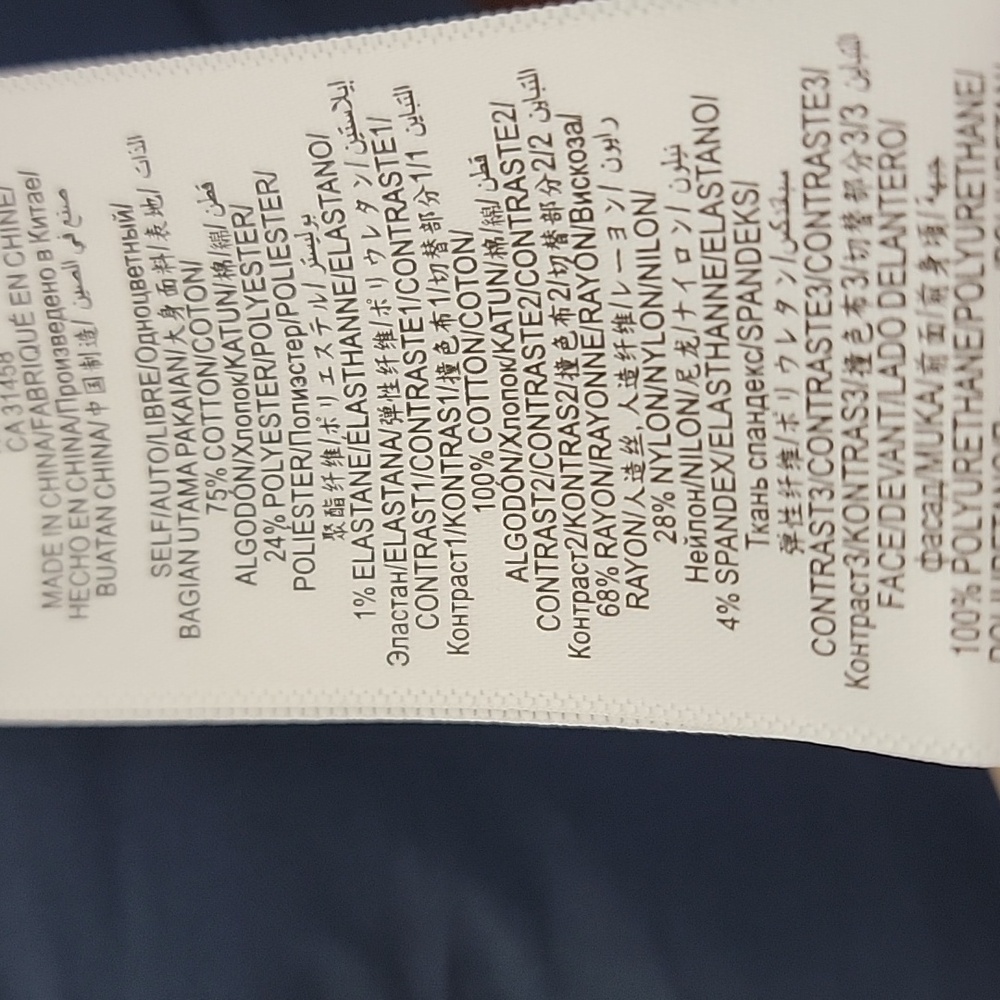 CA 31458
MADE IN CHINA/FABRIQUÉ EN CHINE/
HECHO EN CHINA/Произведено в Китае/
BUATAN CHINA/中国制造/ صنع في الصين
SELF/AUTO/LIBRE/Одноцветный/
BAGIAN UTAMA PAKAIAN/大身面料/表地/ الذات
75% COTTON/COTON/
ALGODÓN/Хлопок/KATUN/棉/綿/ قطن
24% POLYESTER/POLYESTER/
POLIESTER/Полиэстер/POLIESTER/
聚酯纤维/ポリエステル/ بوليستر
1% ELASTANE/ÉLASTHANNE/ELASTANO/
Эластан/ELASTANA/弹性纤维/ポリウレタン/ إيلاستين
CONTRAST1/CONTRASTE1/CONTRASTE1/
Контраст1/KONTRAS1/撞色布1/切替部分1/1 التباين
100% COTTON/COTON/
ALGODÓN/Хлопок/KATUN/棉/綿/ قطن
CONTRAST2/CONTRASTE2/CONTRASTE2/
Контраст2/KONTRAS2/撞色布2/切替部分2/2 التباين
68% RAYON/RAYONNE/RAYÓN/Вискоза/
RAYON/人造丝,人造纤维/レーヨン/ رايون
28% NYLON/NYLON/NILON/
Нейлон/NILON/尼龙/ナイロン/ نيلون
4% SPANDEX/ELASTHANNE/ELASTANO/
Ткань спандекс/SPANDEKS/
弹性纤维/ポリウレタン/ سباندكس
CONTRAST3/CONTRASTE3/CONTRASTE3/
Контраст3/KONTRAS3/撞色布3/切替部分3/3 التباين
FACE/DEVANT/LADO DELANTERO/
фасад/MUKA/前面/前身頃/
100% POLYURETHANE/POLYURETHANE/